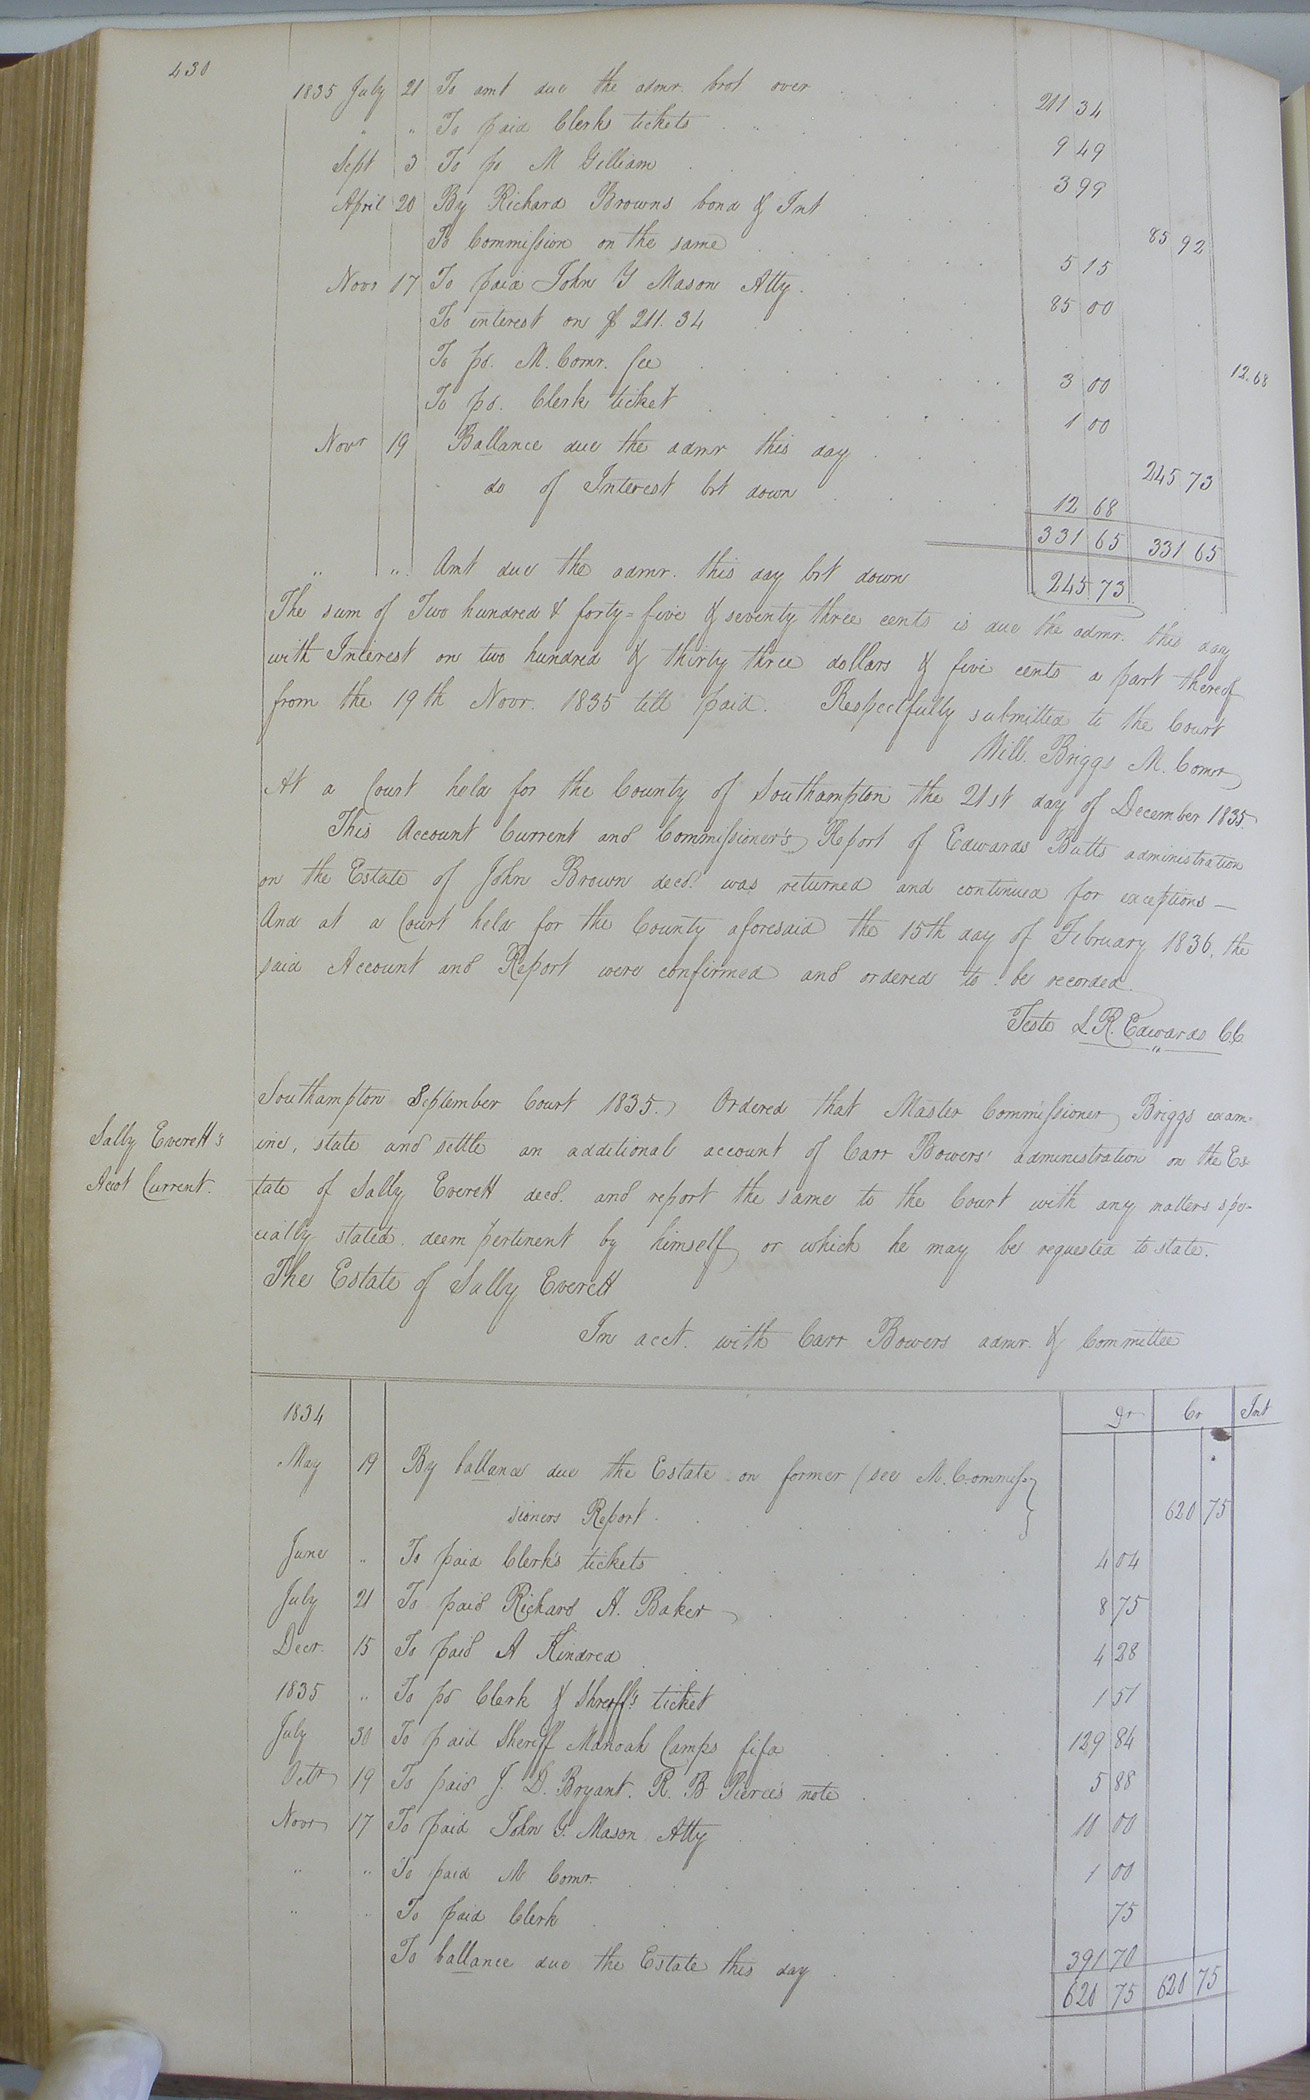 430
1835 July 21 To amt due the admr. brot over 211 34
" " To paid Clerks tickets 9 49
Sept 3 To pd M Gilliam 3 99
April 20 By Richard Browns bond & Int 85 92
To Commission on the same 5 15
Novr 17 To paid John Y Mason Atty. 85 00
To interest on $ 211.34 12.68
To pd. M. Comr. fee 3 00
To pd. Clerk ticket 1 00
Novr 19 Ballance due the admr this day 245 73
do of Interest brt down 12 68
331 65 331 65
" " Amt due the admr. this day brt down 245 73
The sum of Two hundred & forty=five & seventy three cents is due the admr. this day
with Interest on two hundred & thirty three dollars & five cents a part thereof
from the 19th Novr. 1835 till paid. Respectfully submitted to the Court
Will. Briggs M. Comr
At a Court held for the County of Southampton the 21st day of December 1835.
This Account Current and Commissioner's Report of Edwards Butts administration
on the Estate of John Brown decd. was returned and continued for exceptions —
And at a Court held for the County aforesaid the 15th day of February 1836, the
said Account and Report were confirmed and ordered to be recorded.
Teste L. R. Edwards CC
Southampton September Court 1835. Ordered that Master Commissioner Briggs exam-
Sally Everett's
ine, state and settle an additional account of Carr Bowers' administration on the Es-
Acct Current.
tate of Sally Everett decd. and report the same to the Court with any matters spe-
cially stated deem pertinent by himself or which he may be requested to state.
The Estate of Sally Everett
In acct. with Carr Bowers admr. & Committee
1834 Dr Cr Int
May 19 By ballance due the Estate on former (see M. Commis-
sioners Report 620 75
June " To paid Clerk's tickets 4 04
July 21 To paid Richard A. Baker 8 75
Decr. 15 To paid A Kindred 4 28
1835 " To pd Clerk & Shreff's ticket 1 51
July 30 To paid Sheriff Manoah Camps fifa 129 84
Octr 19 To paid J. D. Bryant. R. B. Pierce's note 5 88
Novr 17 To paid John Y. Mason Atty 10 00
" " To paid M Comr. 1 00
" To paid Clerk 75
To ballance due the Estate this day 391 70
620 75 620 75